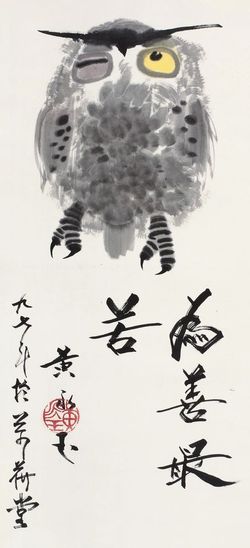 為善最
苦
黄永玉
九七年於萬荷堂